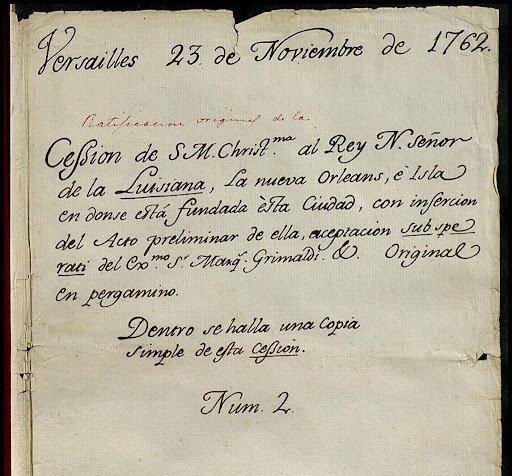 Versailles 23. de Noviembre de 1762.
Ratificacion original de la
Cession de S.M. Christ.ma al Rey N. Señor
de la Luisiana, La nueva Orleans, è Isla
en donse está fundada ésta Ciudad, con insercion
del Acto preliminar de ella, aceptacion sub spe
rati del Exmo. Sr. Marq. Grimaldi. &. Original
en pergamino.
Dentro se halla una Copia
simple de esta Cession.
Num. 2